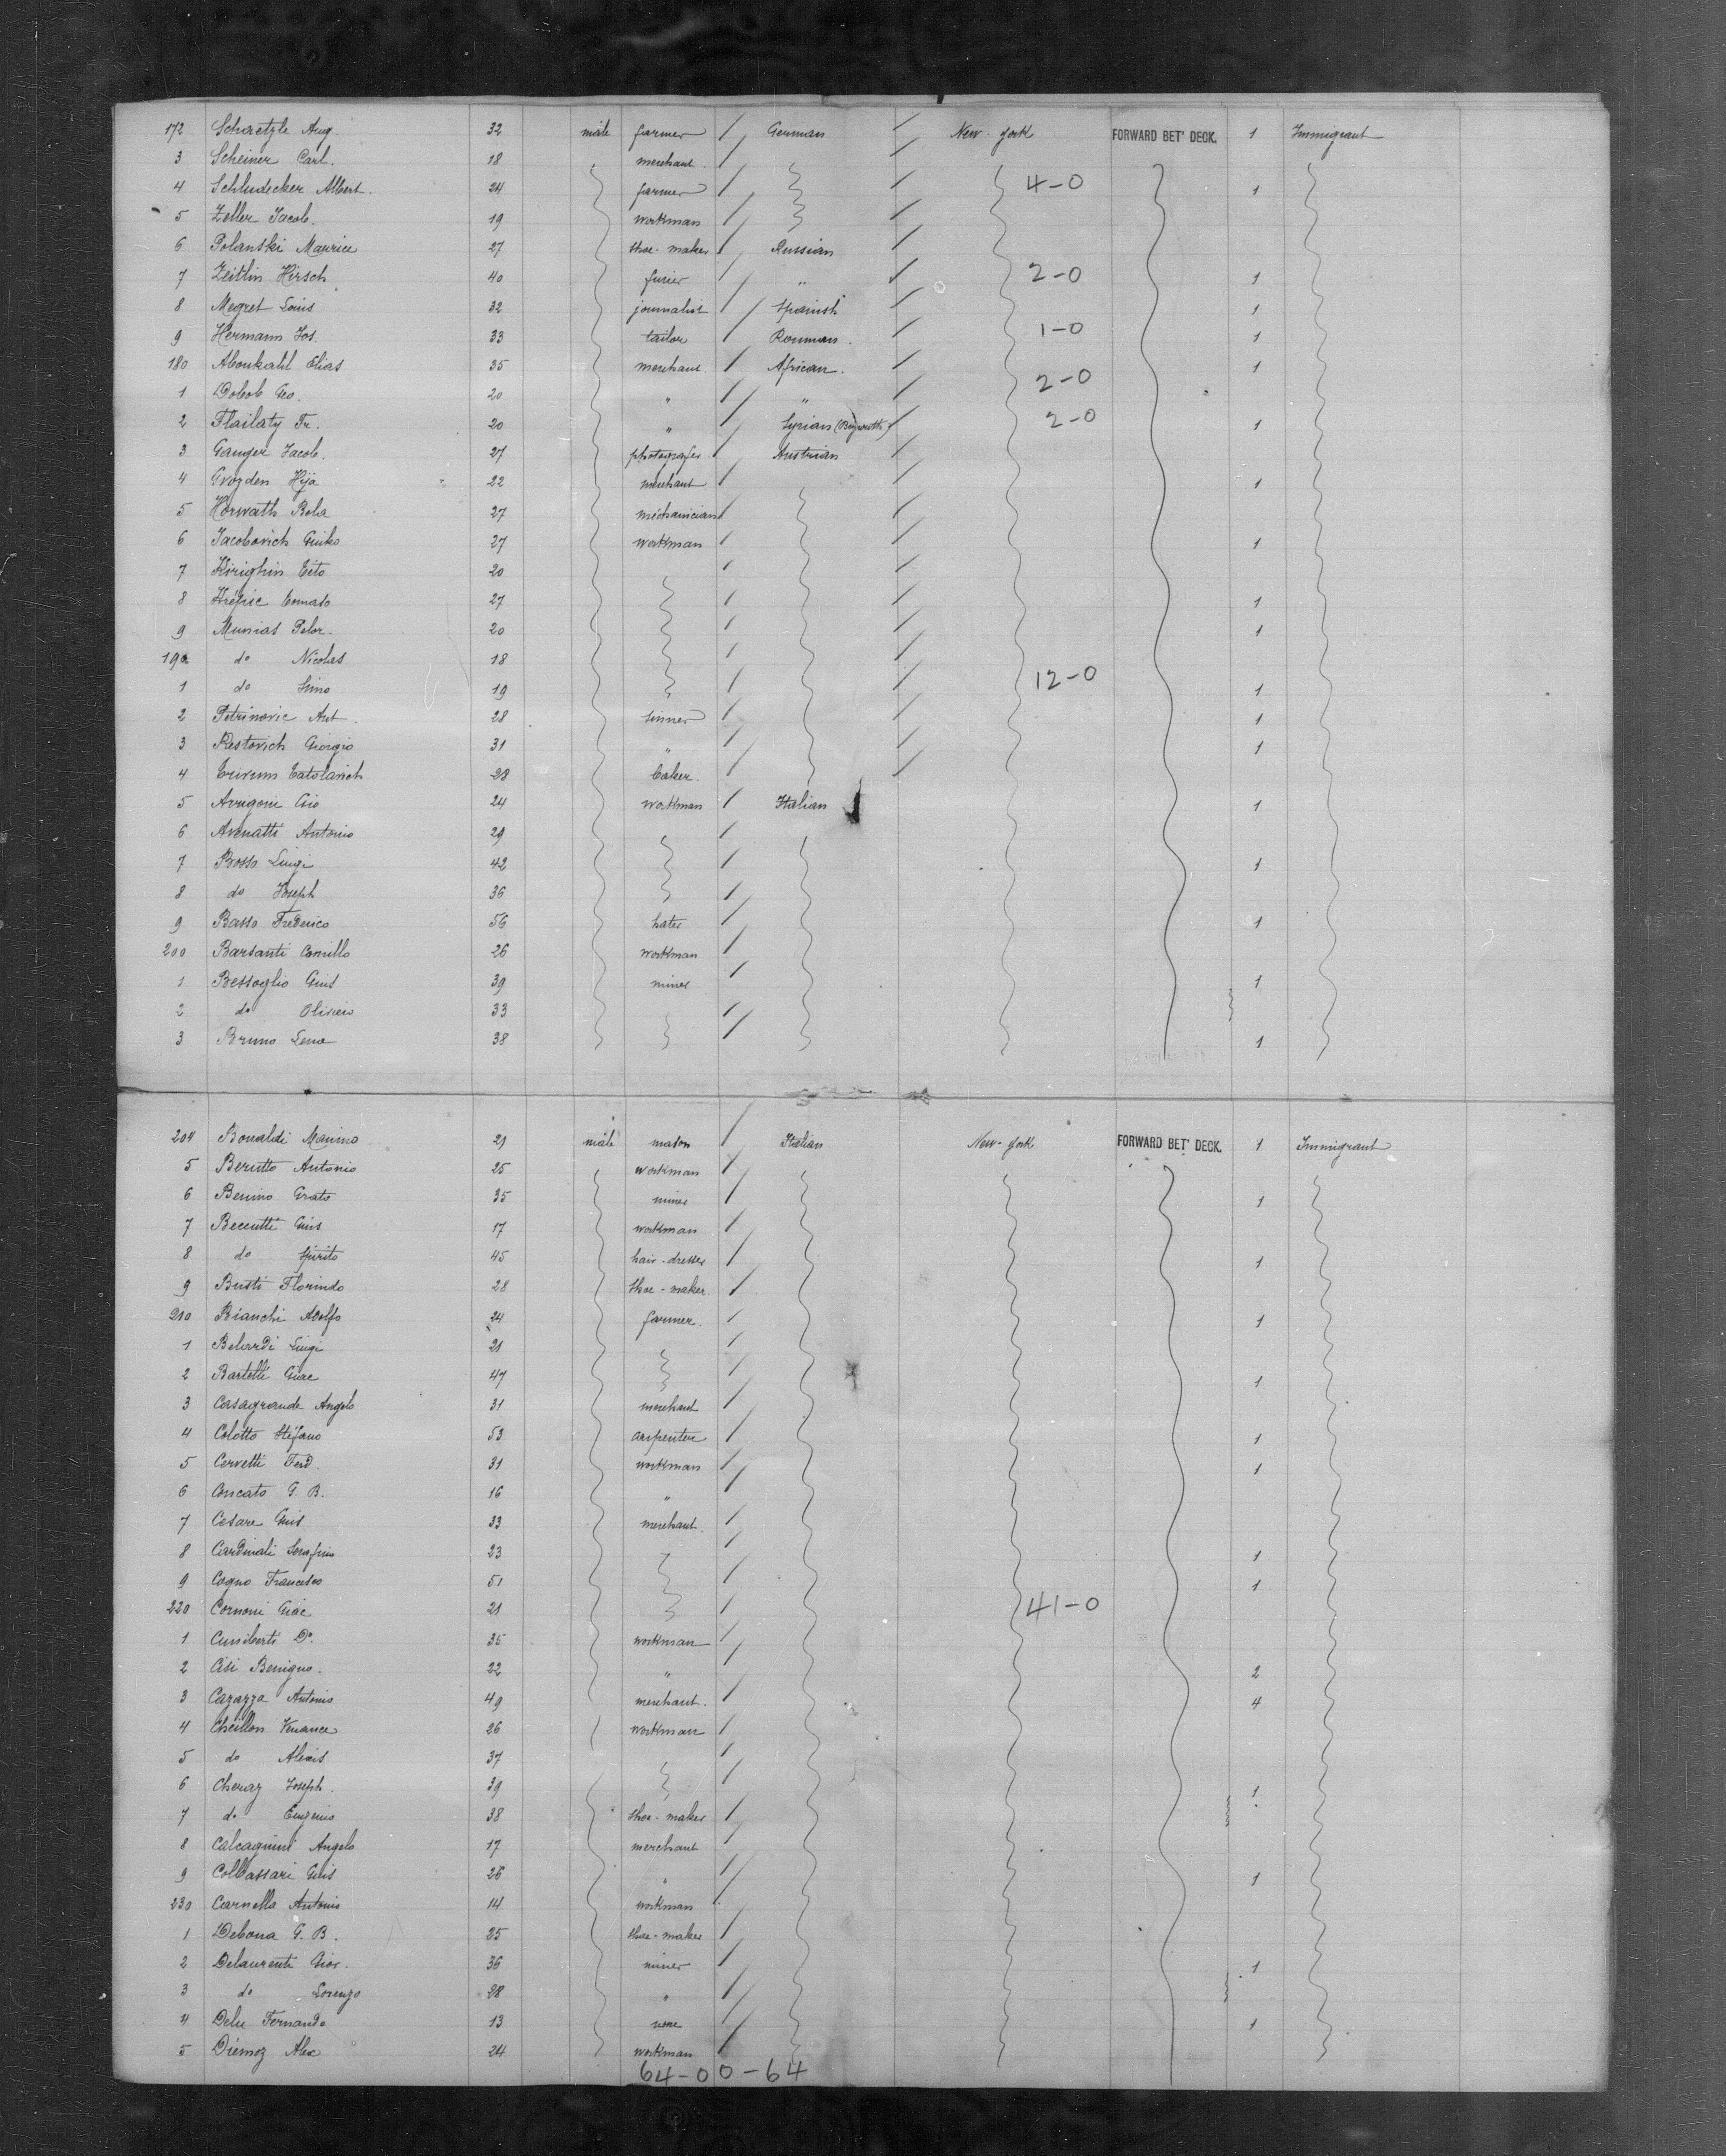 172 Schaetzle Aug. 32 male farmer German New-York FORWARD BET' DECK. 1 Immigrant
3 Scheiner Carl. 18 merchant
4 Schludecker Albert. 24 farmer 4-0 1
5 Zeller Jacob. 19 workman
6 Polanski Maurice 27 shoe-maker Russian
7 Zeitlin Hirsch 40 furier " 2-0 1
8 Megret Louis 32 journalist Spanish 1
9 Hermann Jos. 33 tailor Rouman. 1-0 1
180 Aboukahl Elias 35 merchant African. 1
1 Dobob Geo. 20 " " 2-0
2 Flailaty Fr. 20 " Syrian (Beyrouth) 2-0 1
3 Ganger Jacob. 27 photografer Austrian
4 Gvozden Hija 22 merchant 1
5 Horwath Bela 27 méchanician
6 Jacobovich Guiko 27 workman 1
7 Kirighin Tito 20
8 Comaso 27 1
9 Munias Peter. 20 1
190 do Nicolas 18
1 do Simo 19 12-0 1
2 Petrinovic Ant. 28 1
3 Restovich Giorgio 31 " 1
4 28 baker.
5 Arrigoni Gio 24 workman Italian 1
6 Avenatti Antonio 29
7 Bosso Luigi 42 1
8 do Joseph 36
9 Basso Frederico 56 hater 1
200 Barsanti Camillo 26 workman
1 Bessoglio Gius 39 miner 1
2 do Oliviero 33
3 Bruno 38 1
204 Bonaldi Marino 21 male mason Italian New-York FORWARD BET' DECK. 1 Immigrant
5 Berutto Antonio 25 workman
6 Benino Grato 35 miner 1
7 Beccutti Gius 17 workman
8 do Spirito 45 hair-dresser 1
9 Busti Florindo 28 shoe-maker
210 Bianchi Adolfo 24 farmer. 1
1 Belardi Luigi 21
2 Bartelli Giac 47 1
3 Casagrande Angelo 31 merchant
4 Colotto Stéfano 53 arpenter 1
5 Cervetti Ferd. 31 workman 1
6 Concato G. B. 16 "
7 Cesare Gius 33 merchant.
8 Cardinali Serafino 23 1
9 Cogno Francesco 51 1
220 Cornoni Giac 21 41-0
1 Cuniberti Do. 35 workman
2 Cisi Benigno. 22 " 2
3 Cazazza Antonio 49 merchant. 4
4 Cheillon Venance 26 workman
5 do Alexis 37
6 Cheraz Joseph. 39 1
7 do Eugenio 38 shoe-maker
8 Calcagnini Angelo 17 merchant
9 Colbassari Gius 26 " 1
230 Carnella Antonio 14 workman
1 Debona G. B. 25 shoe-maker
2 Delaurenti Gior. 36 miner 1
3 do Lorenzo 28 "
4 Fernando 13 none 1
5 Diémoz Alex 24 workman
64-0 0-64